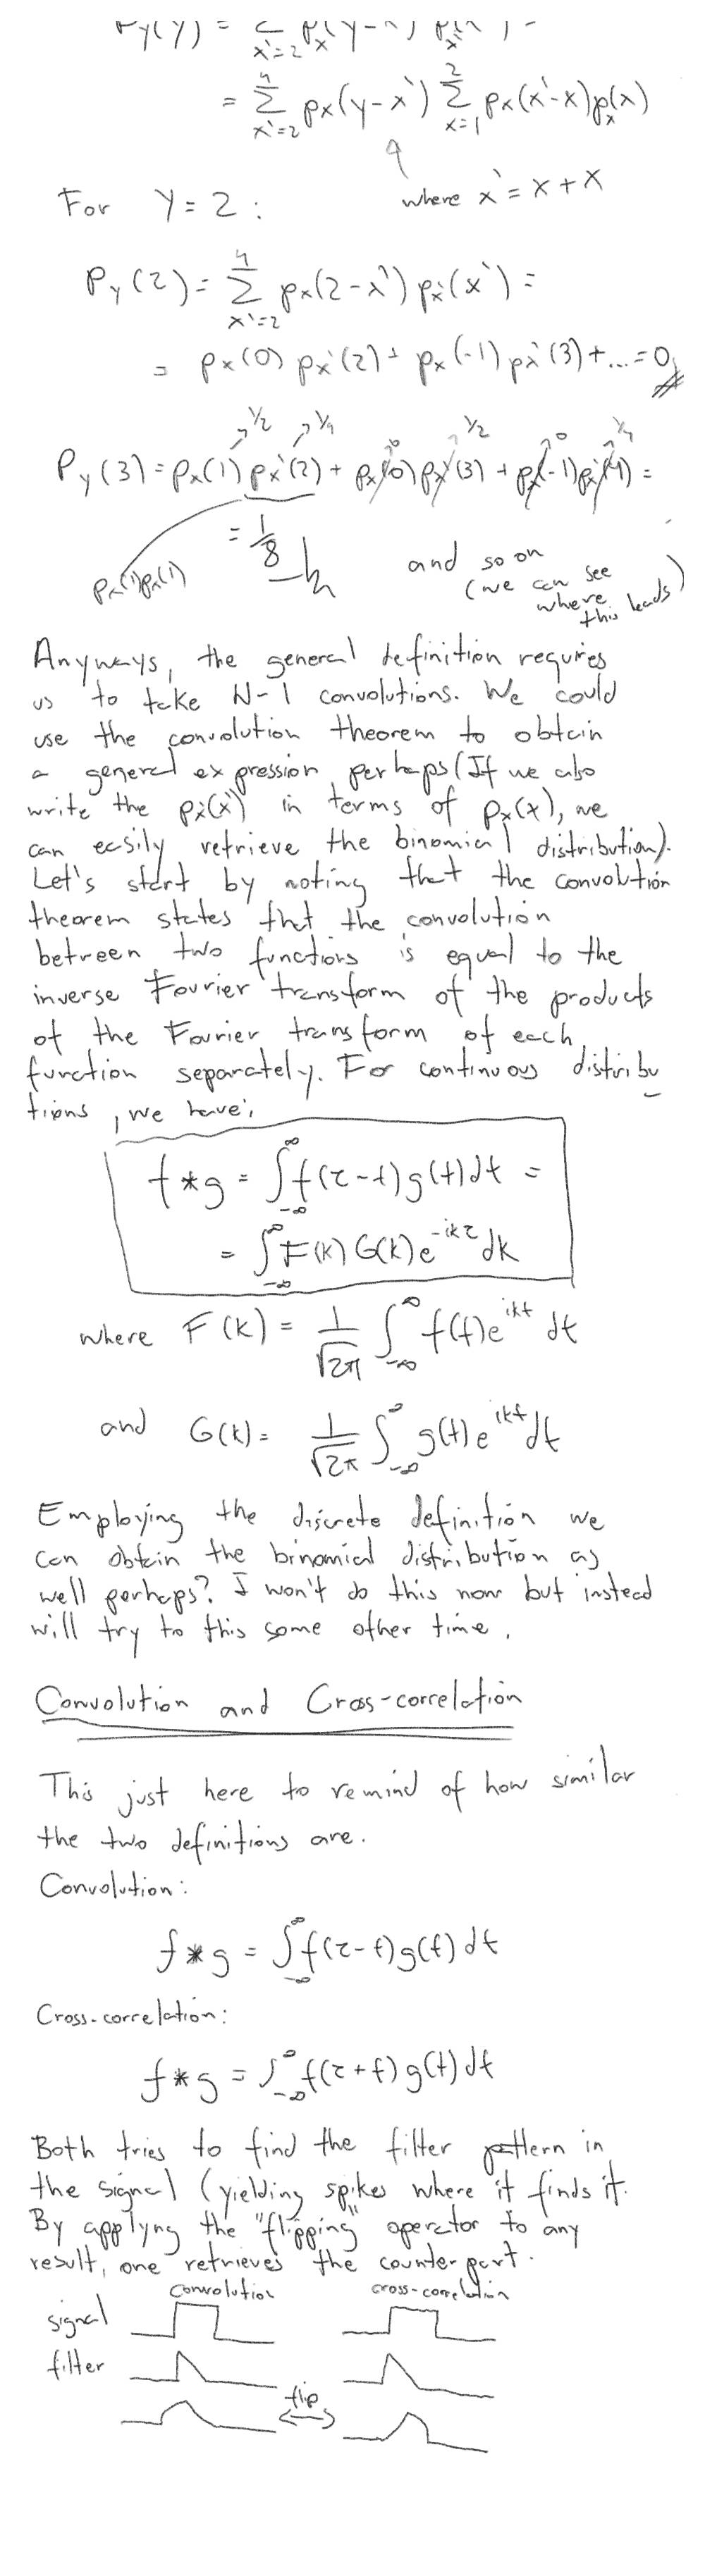 P_Y(y) = Σ_{x`=2} p_x(y-x`) p_x`(x`) =
= Σ_{x`=2}^{4} p_x(y-x`) Σ_{x=1}^{2} p_x(x`-x) p_x(x)
where x` = x + x
For Y = 2 :
P_Y(2) = Σ_{x`=2}^{4} p_x(2-x`) p_x`(x`) =
= p_x(0) p_x`(2) + p_x(-1) p_x`(3) + ... = 0
1/2 1/4 0 1/2 0 1/4
P_Y(3) = p_x(1) p_x`(2) + p_x(0) p_x`(3) + p_x(-1) p_x`(4) =
= 1/8
p_x(1)p_x(1)
and so on
(we can see
where
this leads)
Anyways, the general definition requires
us to take N-1 convolutions. We could
use the convolution theorem to obtain
a general expression perhaps (If we also
write the p_x`(x`) in terms of p_x(x), we
can easily retrieve the binomial distribution).
Let's start by noting that the convolution
theorem states that the convolution
between two functions is equal to the
inverse Fourier transform of the products
of the Fourier transform of each
function separately. For continuous distribu
tions, we have:
f*g = ∫_{-∞}^{∞} f(τ-t)g(t)dt =
= ∫_{-∞}^{∞} F(k) G(k) e^{-ikτ} dk
where F(k) = 1/√2π ∫_{-∞}^{∞} f(t)e^{ikt} dt
and G(k) = 1/√2π ∫_{-∞}^{∞} g(t)e^{ikt} dt
Employing the discrete definition we
can obtain the binomial distribution as
well perhaps? I won't do this now but instead
will try to this some other time.
Convolution and Cross-correlation
This just here to remind of how similar
the two definitions are.
Convolution:
f*g = ∫_{-∞}^{∞} f(τ-t)g(t) dt
Cross-correlation:
f*g = ∫_{-∞}^{∞} f(τ+t) g(t) dt
Both tries to find the filter pattern in
the signal (yielding spikes where it finds it.
By applyng the "flipping" operator to any
result, one retrieves the counterpart.
convolution cross-correlation
signal
filter
flip